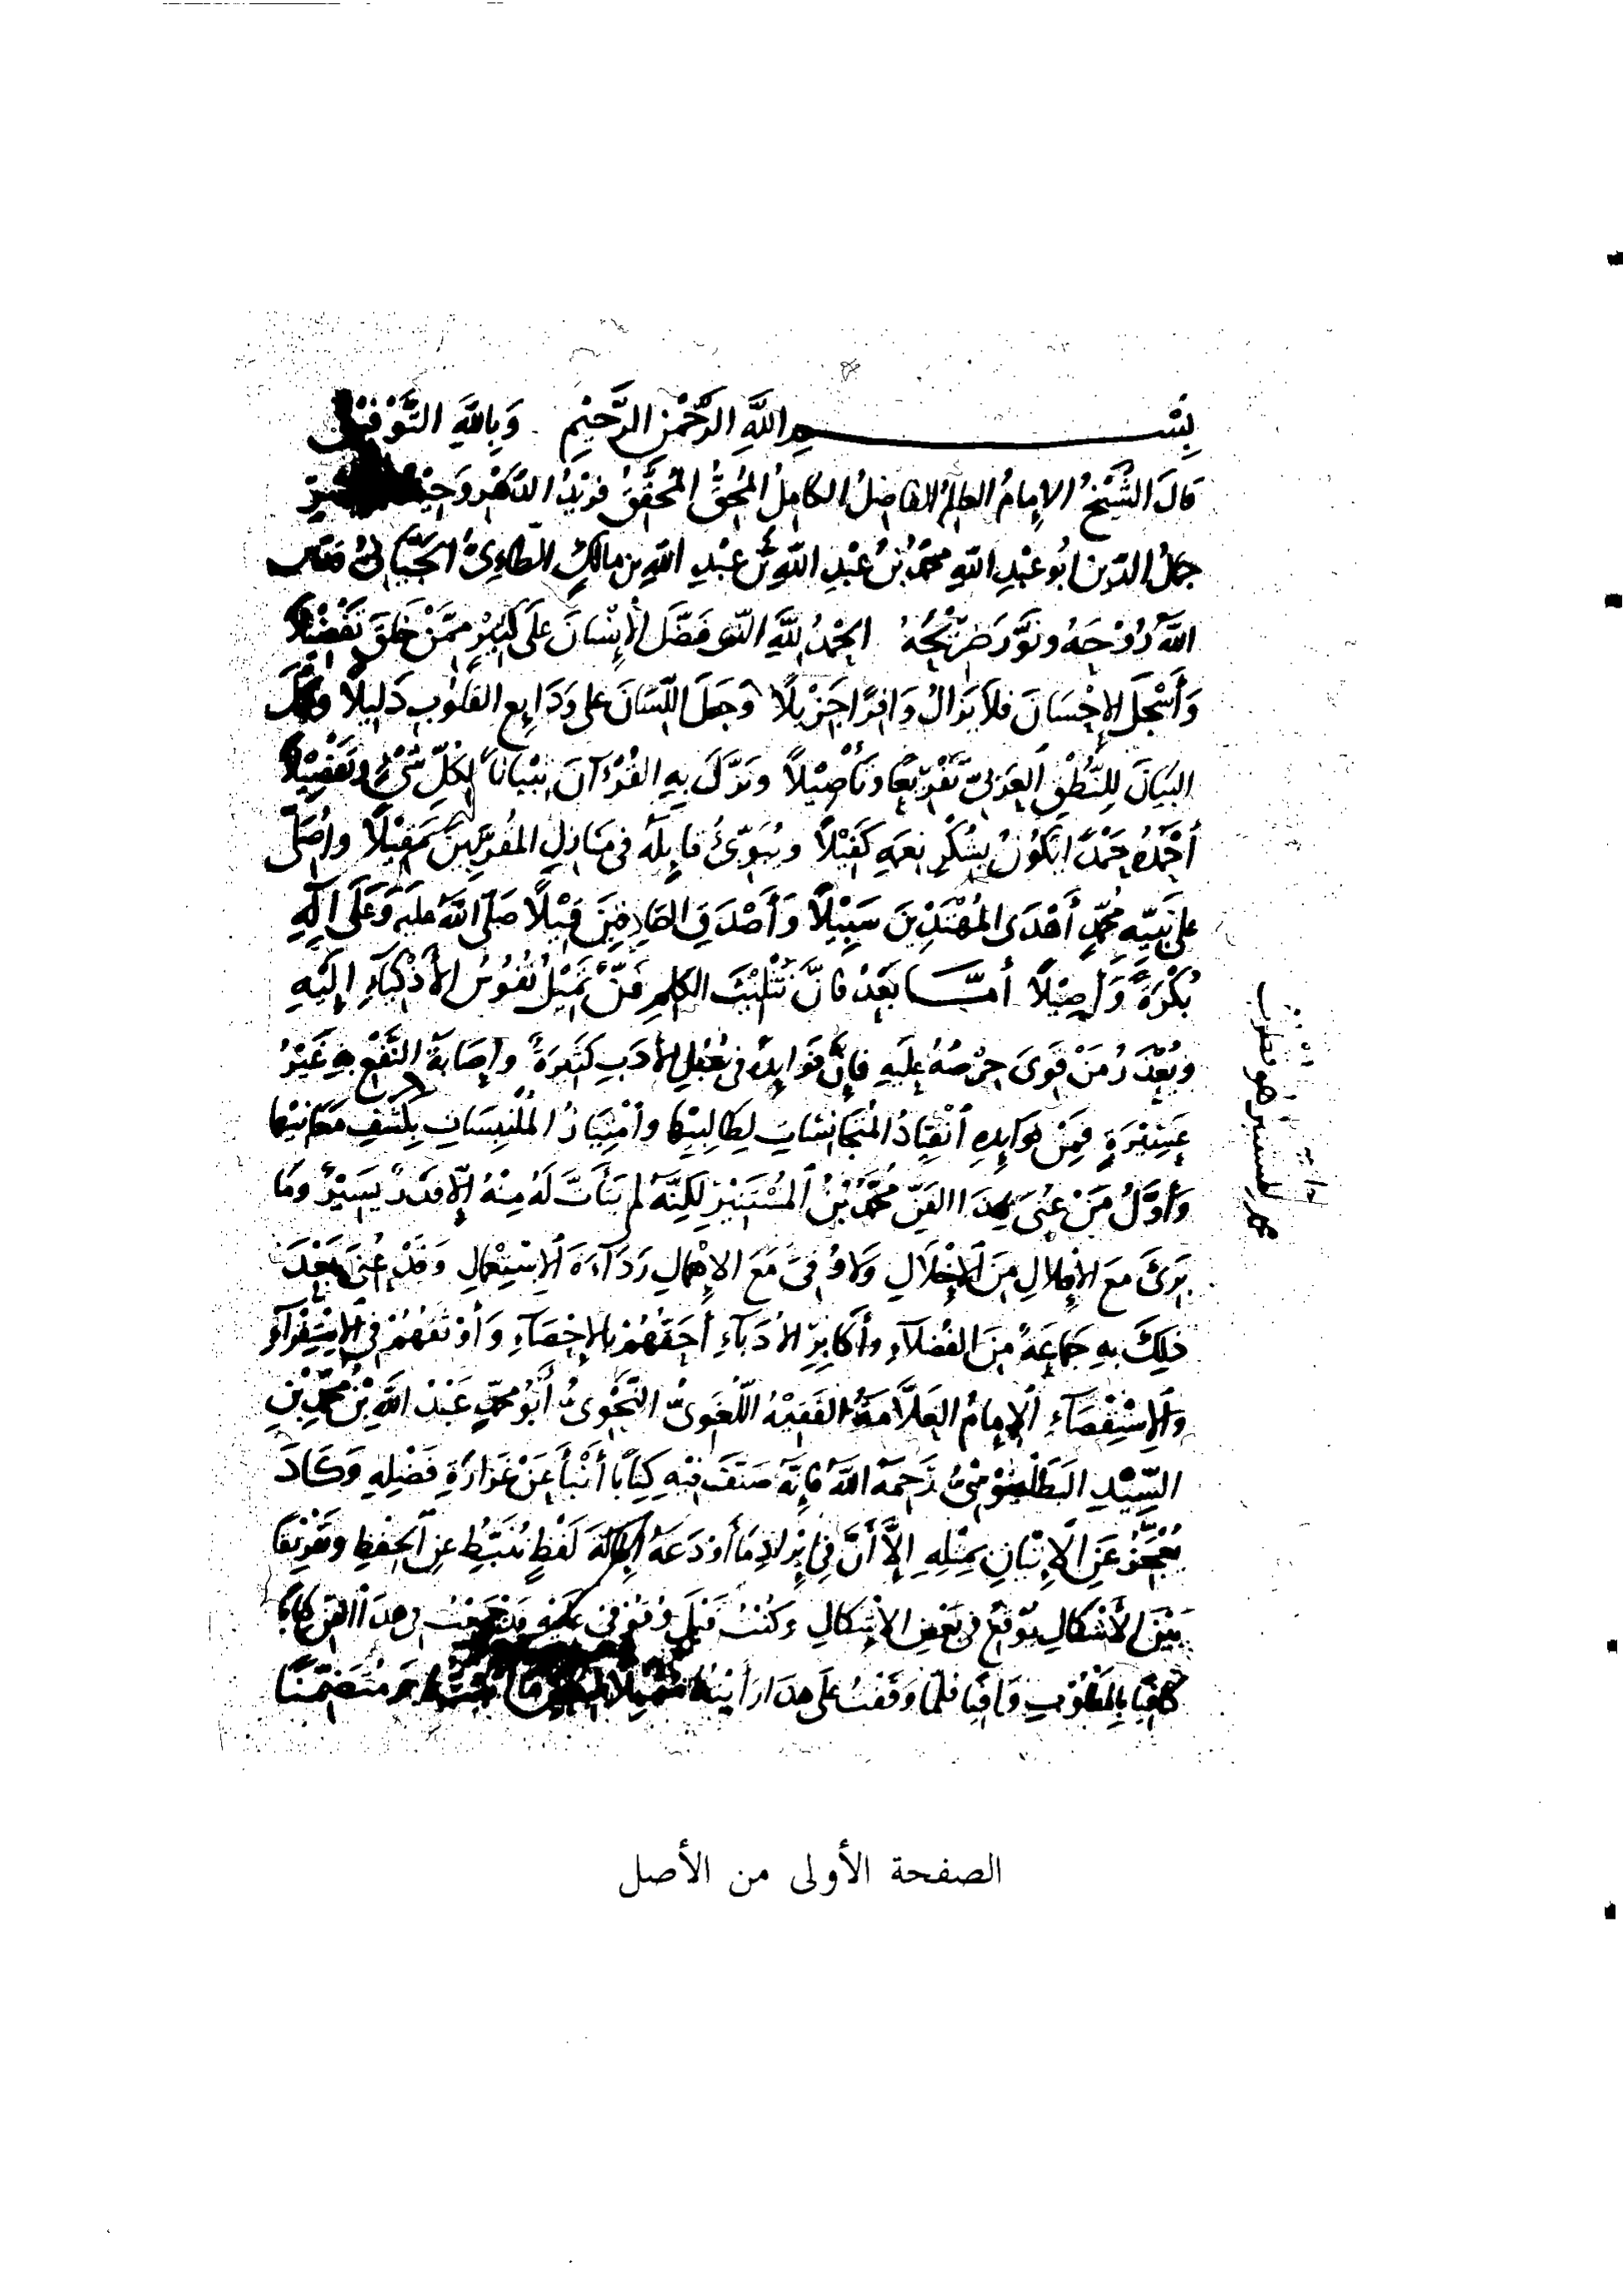 بِسْمِ اللَّهِ الرَّحْمٰنِ الرَّحِيْمِ وَبِاللَّهِ التَّوْفِيْقُ
قَالَ الشَّيْخُ الإِمَامُ العَالِمُ الفَاضِلُ الكَامِلُ المُحِقُّ المُحَقِّقُ فَرِيْدُ الدَّهْرِ وَحِيْدُ
جَمَالُ الدِّينِ أَبُو عَبْدِ اللَّهِ مُحَمَّدُ بْنُ عَبْدِ اللَّهِ بْنِ عَبْدِ اللَّهِ بن مَالِكٍ الطَّاءِيُّ الجَيَّانِيُّ قَدَّسَ
اللَّهُ رُوْحَهُ وَنَوَّرَ ضَرِيْحَهُ الحَمْدُ لِلَّهِ الَّذِي فَضَّلَ الإِنْسَانَ عَلَى كَثِيْرٍ مِمَّنْ خَلَقَ تَفْضِيْلًا
وَأَسْجَلَ الإِحْسَانَ فَلَا يَزَالُ وَافِرًا جَزِيْلًا وَجَعَلَ اللِّسَانَ عَلَى وَدَايِعِ القُلُوْبِ دَلِيْلًا وَكَمَّلَ
البَيَانَ لِلنُّطْقِ العَرَبِيِّ تَفْرِيْعًا وَتَأْصِيْلًا وَنَزَّلَ بِهِ القُرْآنَ تِبْيَانًا لِكُلِّ شَيْءٍ وَتَفْصِيْلًا
أَحْمَدُهُ حَمْدًا يَكُوْنُ بِشُكْرِ نِعَمِهِ كَفِيْلًا وَيُبَوِّئُ قَايِلَهُ فِي مَنَازِلِ المُقَرَّبِيْنَ مَقِيْلًا وَأُصَلِّي
عَلَى نَبِيِّهِ مُحَمَّدٍ أَهْدَى المُهْتَدِيْنَ سَبِيْلًا وَأَصْدَقِ الصَّادِقِيْنَ قِيْلًا صَلَّى اللَّهُ عَلَيْهِ وَعَلَى آلِهِ
بُكْرَةً وَأَصِيْلًا أَمَّا بَعْدُ فَإِنَّ تَثْلِيْثَ الكَلِمِ فَنٌّ تَمِيْلُ نُفُوْسُ الأَذْكِيَاءِ إِلَيْهِ
وَيُعْذَرُ مَنْ قَوِيَ حِرْصُهُ عَلَيْهِ فَإِنَّ فَوَايِدَهُ فِي سُبُلِ الأَدَبِ كَثِيْرَةٌ وَإِصَابَةَ النَّفْعِ بِهِ غَيْرُ
عَسِيْرَةٍ فَمِنْ فَوَايِدِهِ انْقِيَادُ المُتَجَانِسَاتِ لِطَالِبِيْهَا وَامْتِيَازُ المُلْتَبِسَاتِ بِكَشْفِ مَعَانِيْهَا
وَأَوَّلُ مَنْ عُنِيَ بِهَذَا الفَنِّ مُحَمَّدُ بْنُ المُسْتَنِيْرِ لَكِنَّهُ لَمْ يَتَأَتَّ لَهُ مِنْهُ إِلَّا قَدْرٌ يَسِيْرٌ وَمَا
بَرِئَ مَعَ الإِقْلَالِ مِنَ الإِخْلَالِ وَلَا وُقِيَ مَعَ الإِهْمَالِ رَدَاءَةَ الاِسْتِعْمَالِ وَقَدْ عُنِيَ بَعْدَ
ذَلِكَ بِهِ جَمَاعَةٌ مِنَ الفُضَلَاءِ وَأَكَابِرِ الأُدَبَاءِ أَحَقُّهُمْ بِالإِحْصَاءِ وَأَوْثَقُهُمْ فِي الاِسْتِقْرَاءِ
وَالاِسْتِقْصَاءِ الإِمَامُ العَلَّامَةُ الفَقِيْهُ اللُّغَوِيُّ النَّحْوِيُّ أَبُو مُحَمَّدٍ عَبْدُ اللَّهِ بْنُ مُحَمَّدِ بْنِ
السِّيْدِ البَطَلْيَوْسِيُّ رَحِمَهُ اللَّهُ فَإِنَّهُ صَنَّفَ فِيْهِ كِتَابًا أَنْبَأَ عَنْ غَزَارَةِ فَضْلِهِ وَكَادَ
يُعْجِزُ عَنِ الإِتْيَانِ بِمِثْلِهِ إِلَّا أَنَّ فِي إِيْرَادِهِ مَا أَوْدَعَهُ إِطَالَةَ لَفْظٍ تُثَبِّطُ عَنِ الحِفْظِ وَتَفْرِيْقًا
بَيْنَ الأَشْكَالِ يُوْقِعُ فِي بَعْضِ الإِشْكَالِ وَكُنْتُ قَبْلَ وُقُوْفِي عَلَيْهِ قَدْ جَمَعْتُ فِي هَذَا الفَنِّ كِتَابًا
كَافِيًا بِالمَطْلُوْبِ وَافِيًا فَلَمَّا وَقَفْتُ عَلَى هَذَا رَأَيْتُهُ مُتَضَمِّنًا
محمد بن المستنير هو قطرب
الصفحة الأولى من الأصل